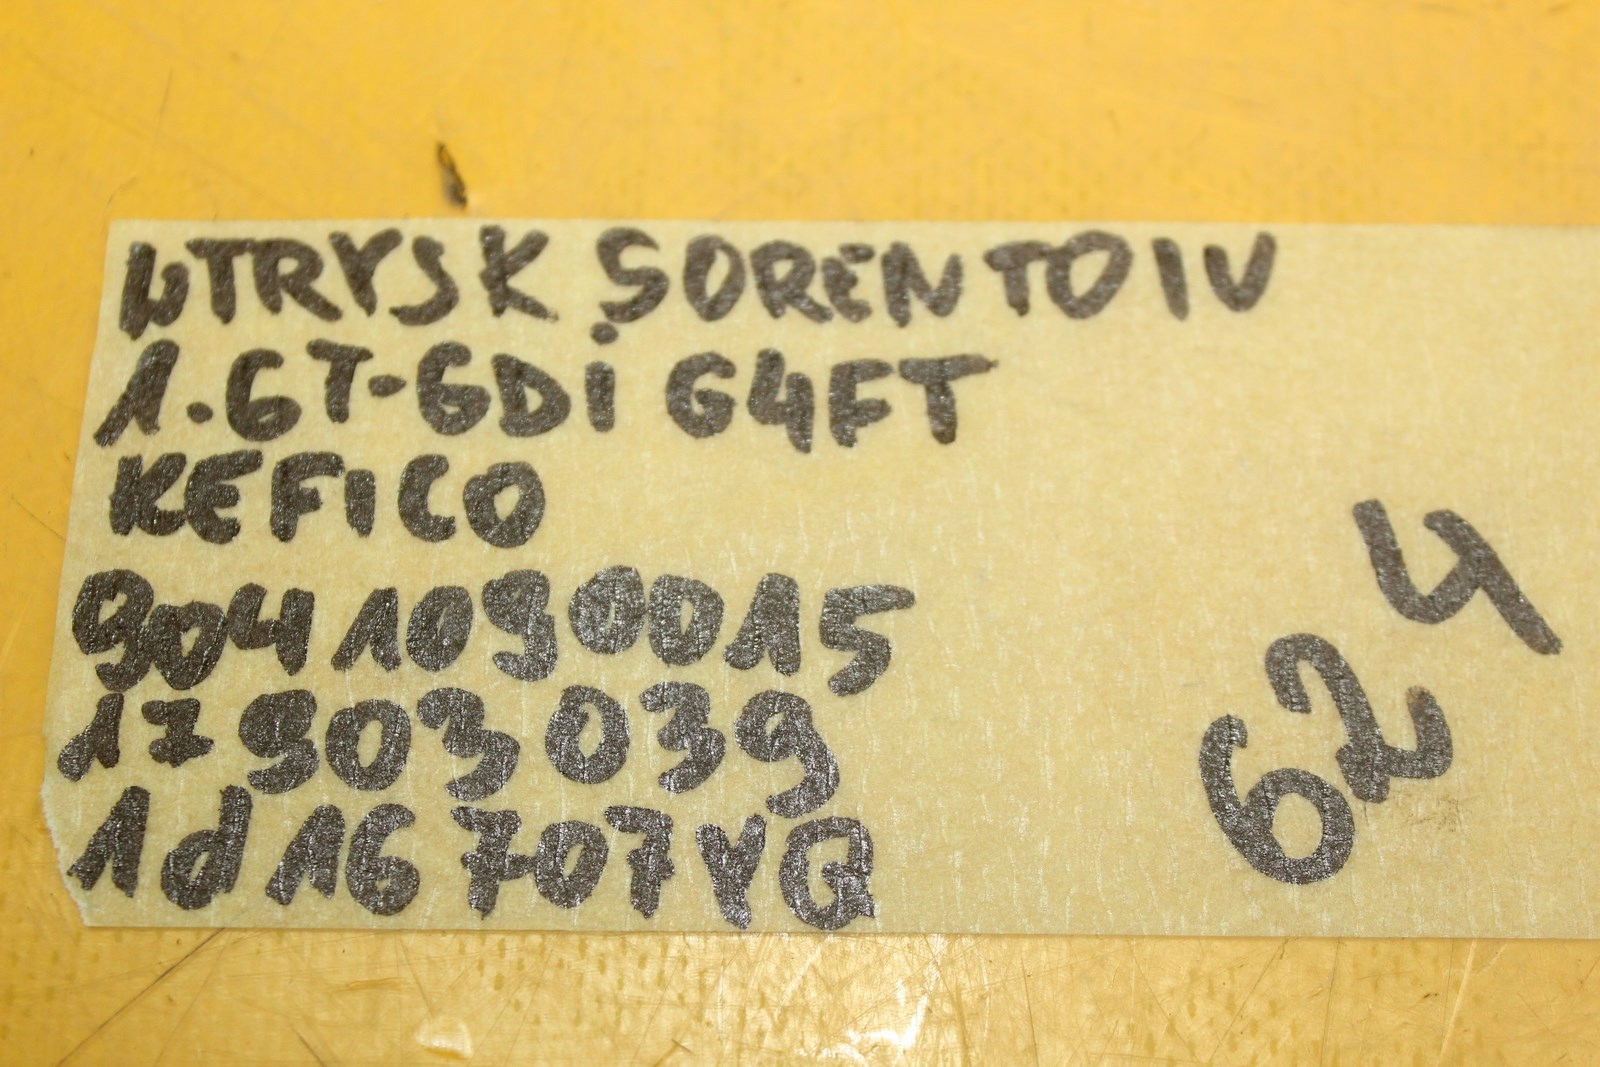 WTRYSK SORENTO IV
1.6T-GDi G4FT
KEFICO
9041090015
17903039
1d16707YQ
624